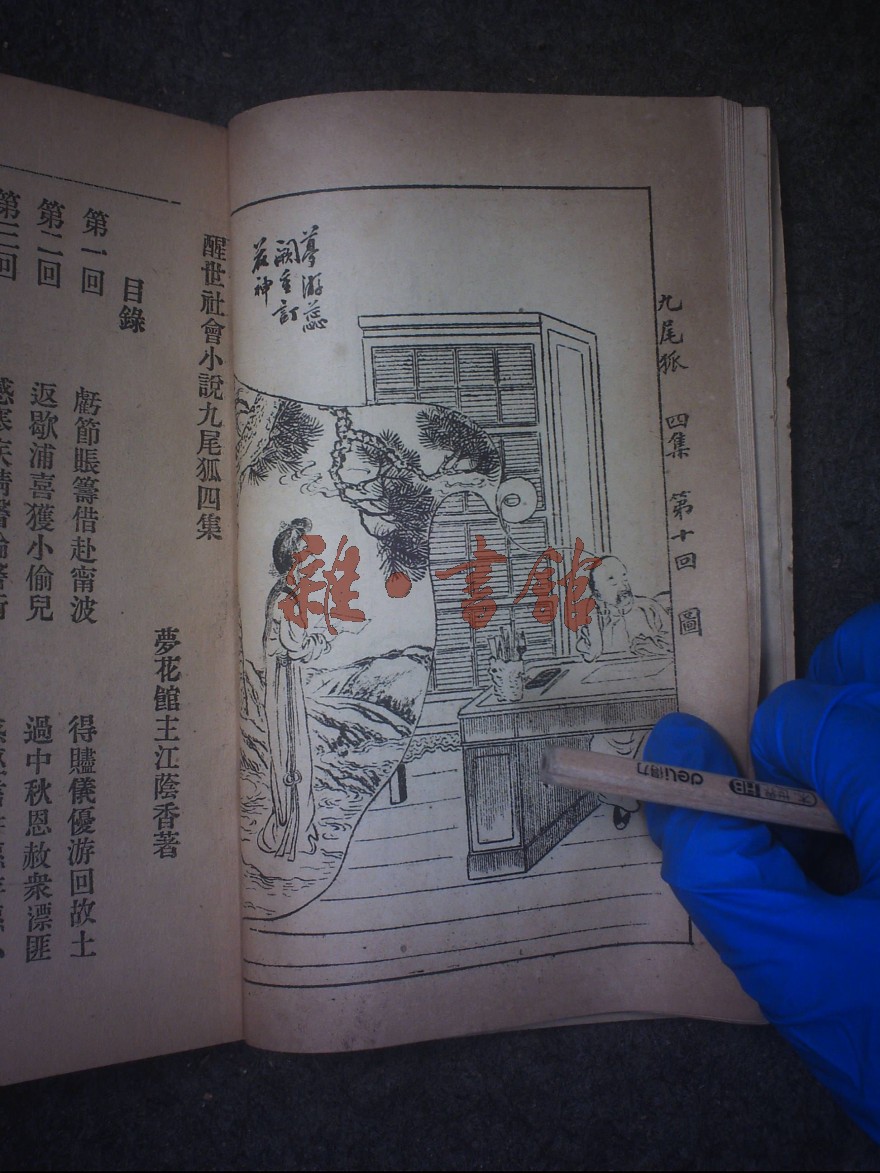 九尾狐 四集 第十回 圖
夢游蕊
闕重訂
花神
雜·書館
醒世社會小說九尾狐四集
夢花館主江蔭香著
目錄
第一回 虧節賬籌借赴甯波 得贐儀優游回故土
第二回 返歇浦喜獲小偷兒 過中秋恩赦衆漂匪
第三回
deli得力 HB